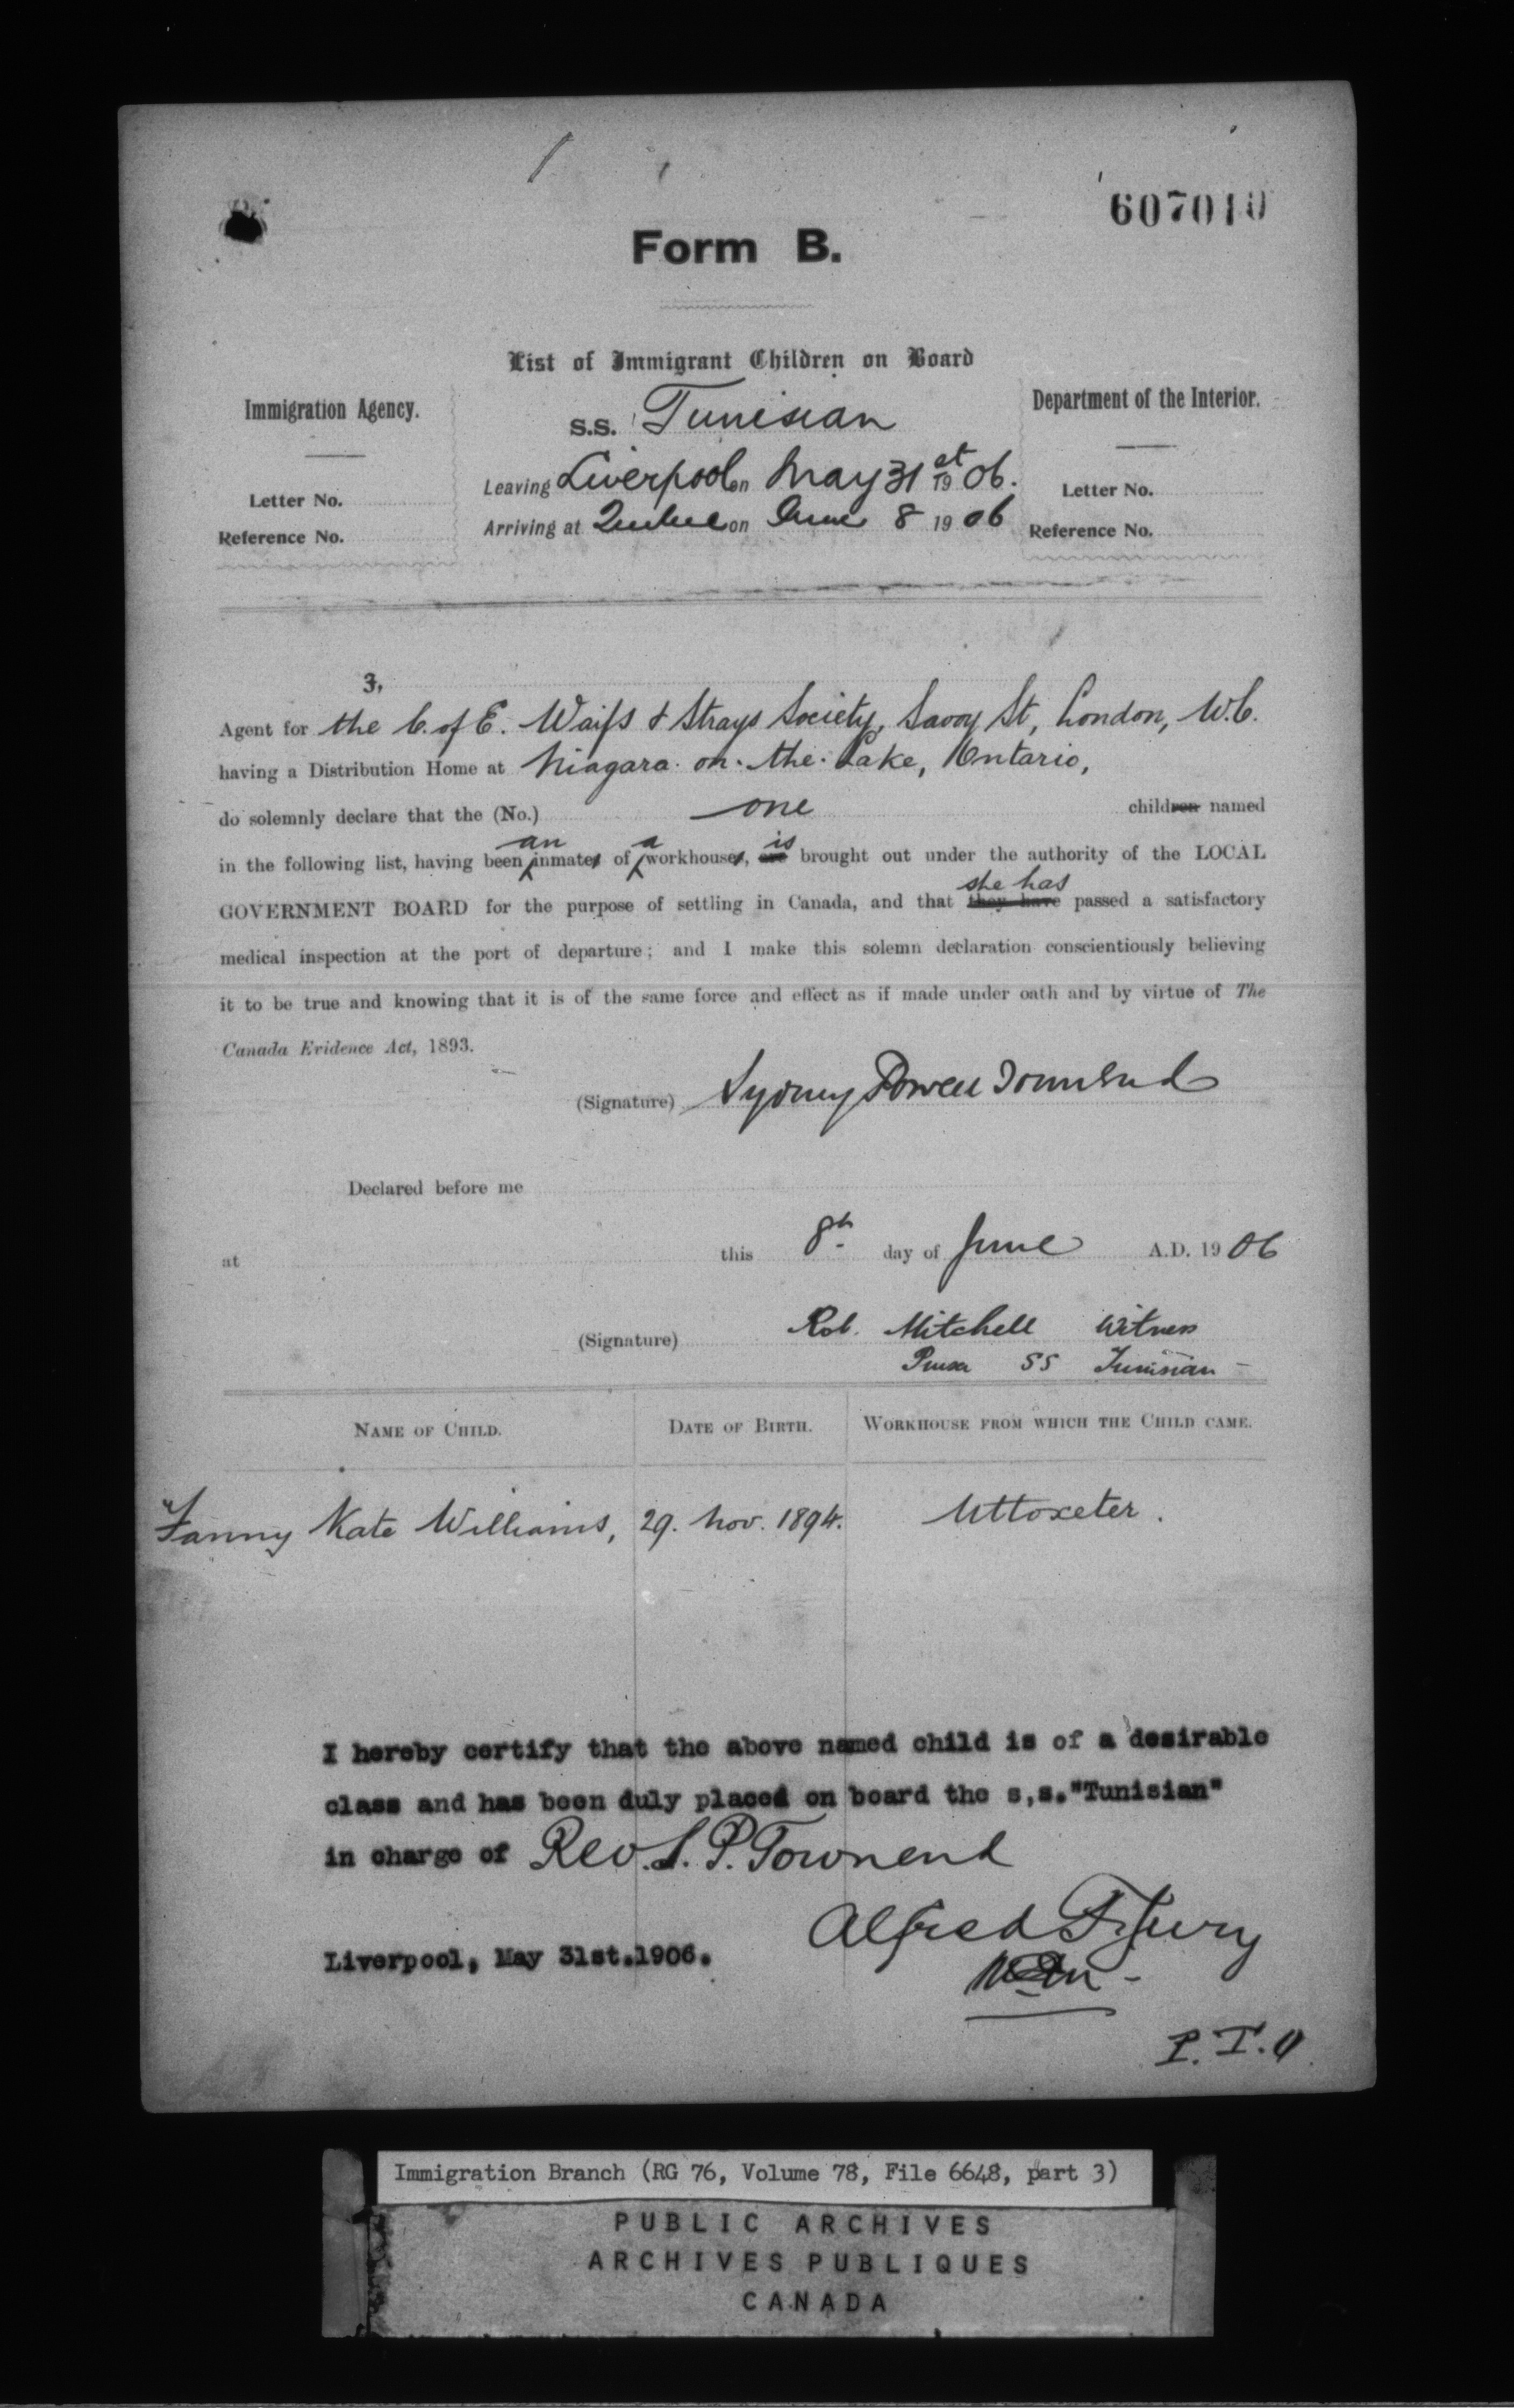 607010
Form B.
List of Immigrant Children on Board
Immigration Agency.
Department of the Interior.
S.S. Tunisian
Leaving Liverpool on May 31st 1906.
Letter No.
Letter No.
Arriving at Quebec on June 8 1906
Reference No.
Reference No.
3,
Agent for the C. of E. Waifs & Strays Society, Savoy St, London, W.C.
having a Distribution Home at Niagara-on-the-Lake, Ontario,
do solemnly declare that the (No.) one children named
an a is
in the following list, having been inmates of workhouses, are brought out under the authority of the LOCAL
she has
GOVERNMENT BOARD for the purpose of settling in Canada, and that they have passed a satisfactory
medical inspection at the port of departure; and I make this solemn declaration conscientiously believing
it to be true and knowing that it is of the same force and effect as if made under oath and by virtue of The
Canada Evidence Act, 1893.
(Signature) Sydney Powell Townend
Declared before me
at this 8th day of June A.D. 1906
(Signature) Rob. Mitchell Witness
Purser SS Tunisian
NAME OF CHILD. DATE OF BIRTH. WORKHOUSE FROM WHICH THE CHILD CAME.
Fanny Kate Williams, 29. Nov. 1894. Uttoxeter.
I hereby certify that the above named child is of a desirable
class and has been duly placed on board the s,s."Tunisian"
in charge of Rev. S. P. Townend
Alfred F. Jury
Liverpool, May 31st.1906.
P.T.O
Immigration Branch (RG 76, Volume 78, File 6648, part 3)
PUBLIC ARCHIVES
ARCHIVES PUBLIQUES
CANADA